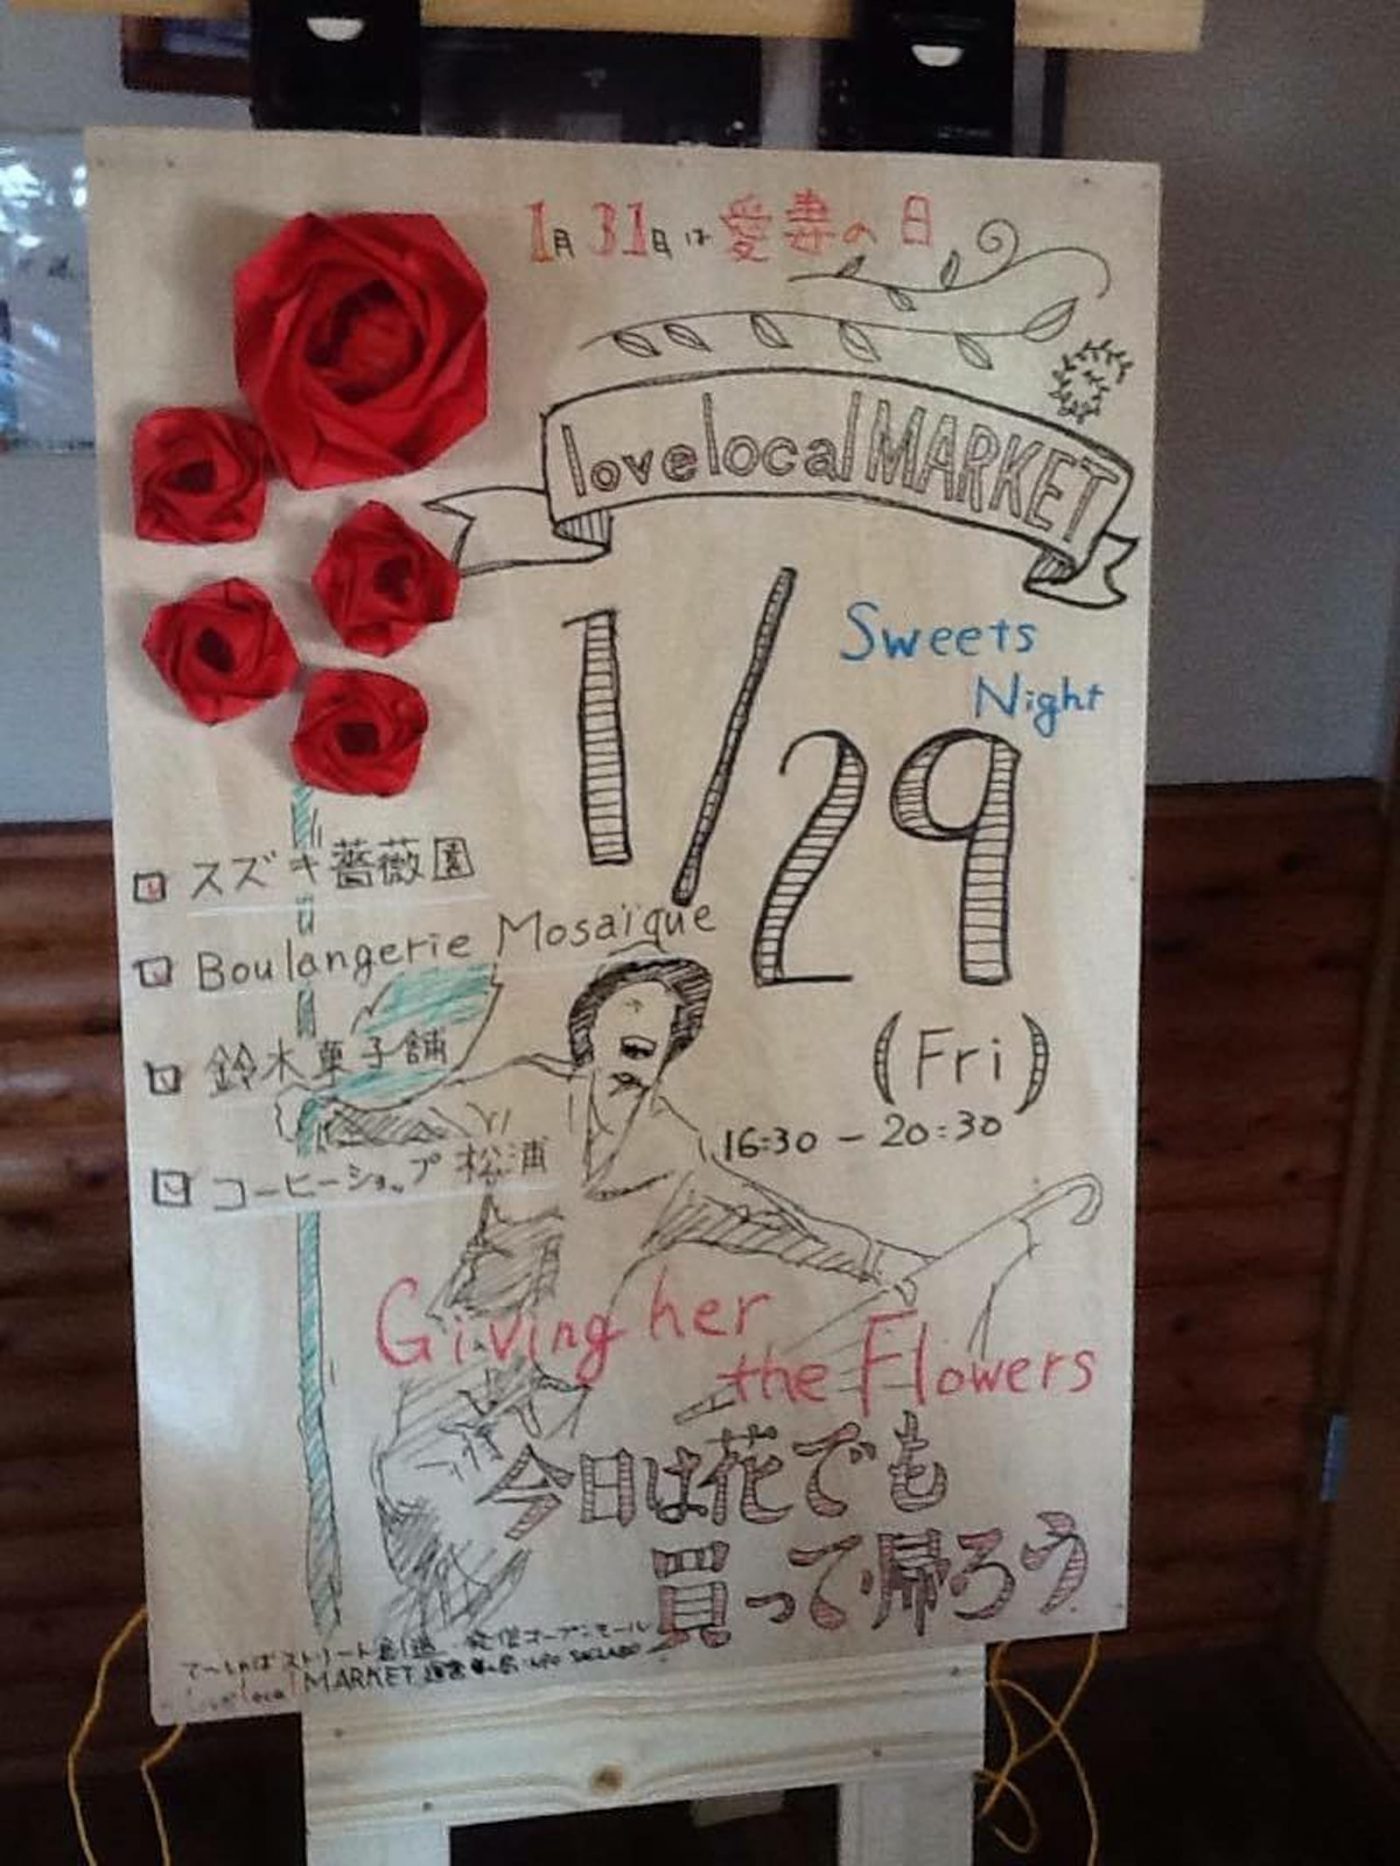 1月31日は愛妻の日
lovelocalMARKET
Sweets
Night
1/29
(Fri)
16:30 - 20:30
スズキ薔薇園
Boulangerie Mosaïque
鈴木菓子舗
コーヒーショップ 松浦
Giving her
the Flowers
今日は花でも
買って帰ろう
てっしゃばストリート
local MARKET 運営事務局 NPO